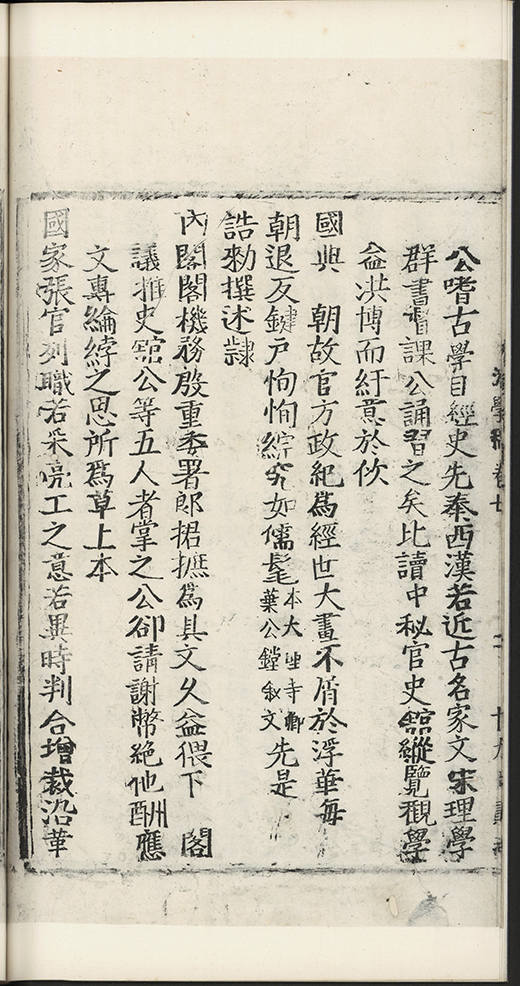 公嗜古學目經史先秦西漢若近古名家文宋理學
群書督課公誦習之矣比讀中秘官史舘縱覽覩學
益洪博而紆意於攸
國典　朝故官方政紀為經世大畫不屑於浮華每
朝退反鍵戶恂恂綜究如儒髦本大理寺卿葉公鏜叙文先是
誥勑撰述隸
內閣閣機務殷重委署郎捃摭為具文久益猥下　閣
議推史舘公等五人者掌之公卻請謝幣絕他酬應
文專綸綍之思所為草上本
國家張官列職若采亮工之意若異時判合增裁沿革
學 卷七